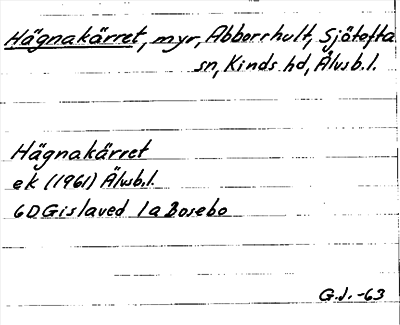 Hägnakärret, myr, Abborrhult, Sjötofta
sn, Kinds hd, Älvsb.l.
Hägnakärret
ek (1961) Älvsb.l.
6D Gislaved 1a Bosebo
G.J. -63